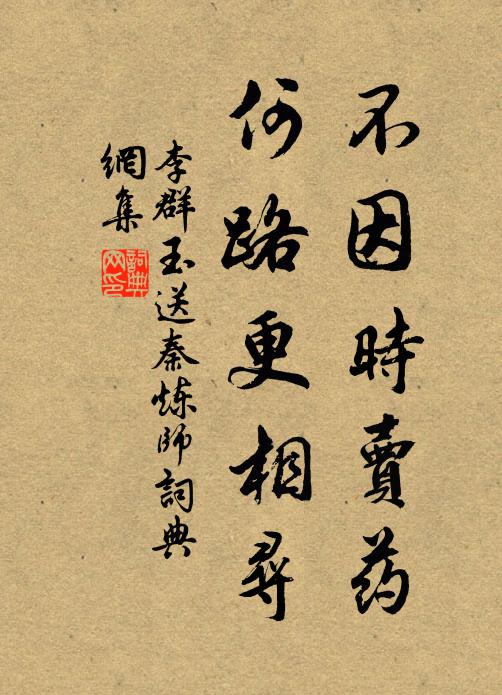 不因時賣药
何路更相尋
李群玉送秦炼師詞典
網集
詞典网印